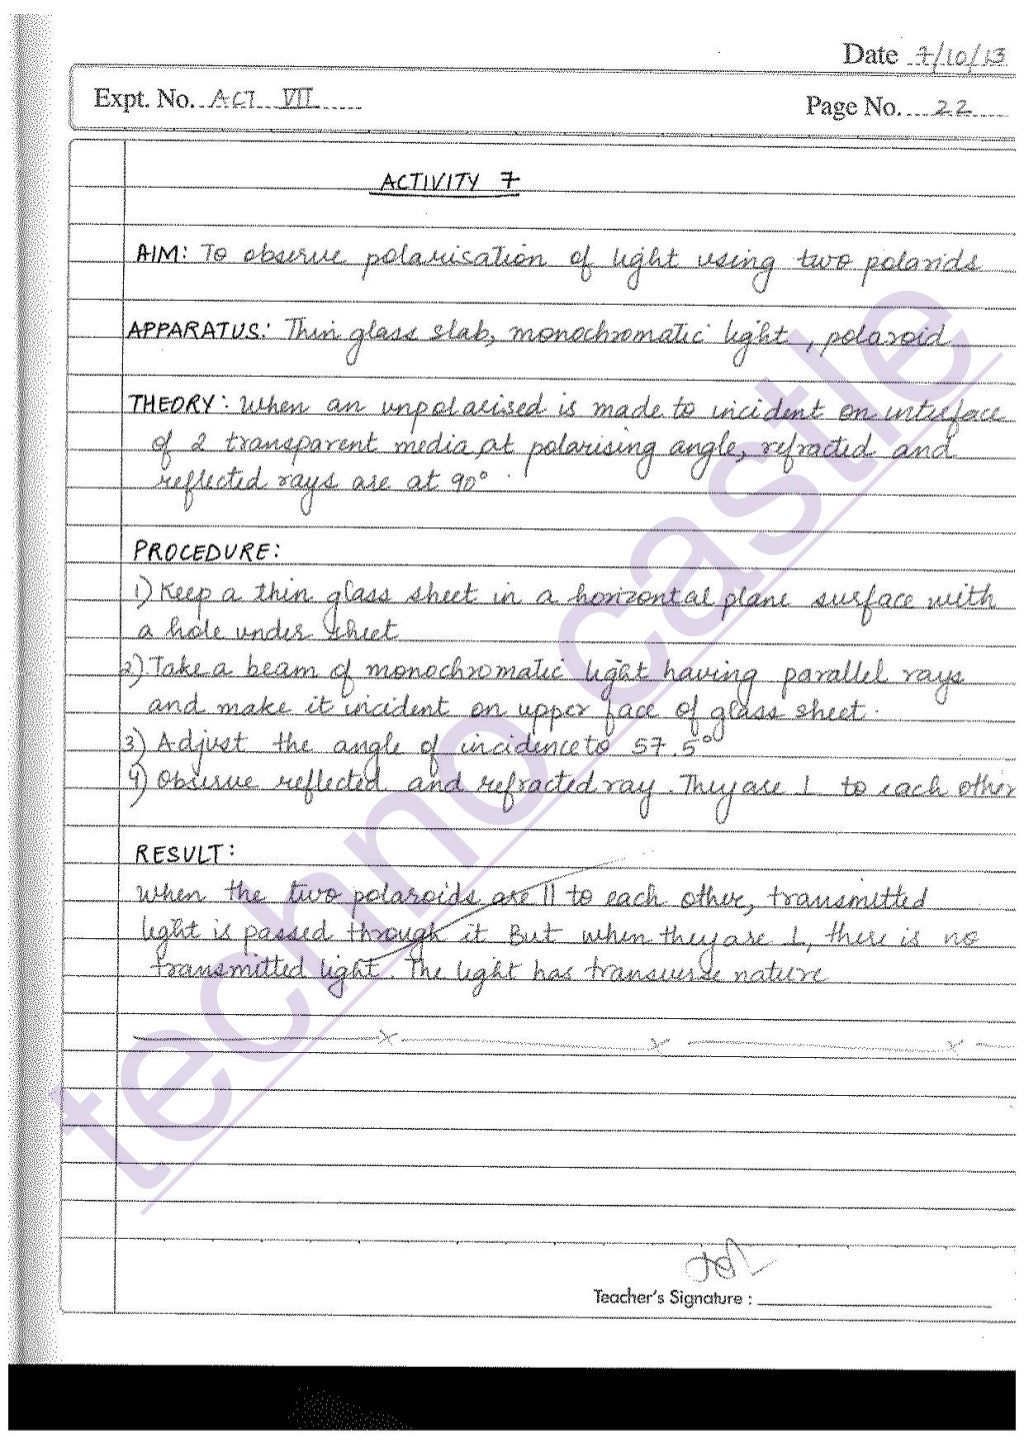 Date 7/10/13
Expt. No. ACT VII
Page No. 22
ACTIVITY 7
AIM: To observe polarisation of light using two polarids
APPARATUS: Thin glass slab, monochromatic light, polaroid
THEORY: When an unpolarised is made to incident on interface
of 2 transparent media at polarising angle, refracted and
reflected rays are at 90°.
PROCEDURE:
1) Keep a thin glass sheet in a horizontal plane surface with
a hole under sheet
2) Take a beam of monochromatic light having parallel rays
and make it incident on upper face of glass sheet.
3) Adjust the angle of incidence to 57.5°
4) Observe reflected and refracted ray. They are ⊥ to each other
RESULT:
When the two polaroids are || to each other, transmitted
light is passed through it But when they are ⊥, there is no
transmitted light. The light has transverse nature
Teacher's Signature :
technocastle